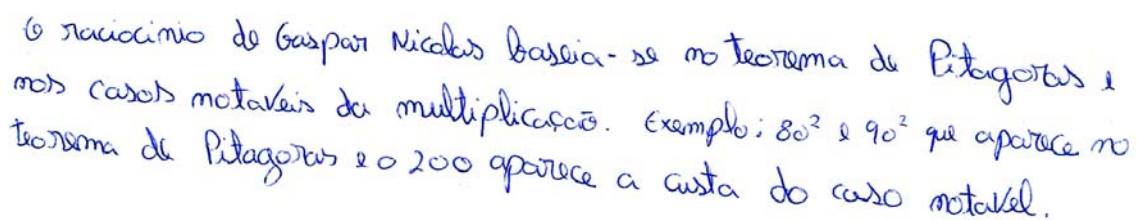 O raciocinio de Gaspar Nicolas baseia-se no teorema de Pitagoras e
nos casos notaveis da multiplicação. Exemplo: 80² e 90² que aparece no
teorema de Pitagoras e o 200 aparece a custa do caso notavel.